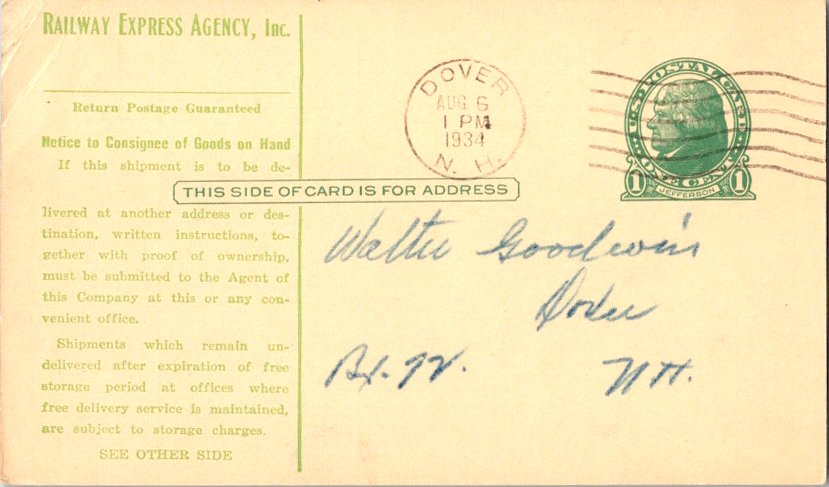 RAILWAY EXPRESS AGENCY, INC.
Return Postage Guaranteed
Notice to Consignee of Goods on Hand
If this shipment is to be de-
livered at another address or des-
tination, written instructions, to-
gether with proof of ownership,
must be submitted to the Agent of
this Company at this or any con-
venient office.
Shipments which remain un-
delivered after expiration of free
storage period at offices where
free delivery service is maintained,
are subject to storage charges.
SEE OTHER SIDE
THIS SIDE OF CARD IS FOR ADDRESS
DOVER
AUG 6
1 PM
1934
N. H.
U.S. POSTAL CARD
ONE CENT
1 JEFFERSON 1
Walter Goodwin
Dover
N H.